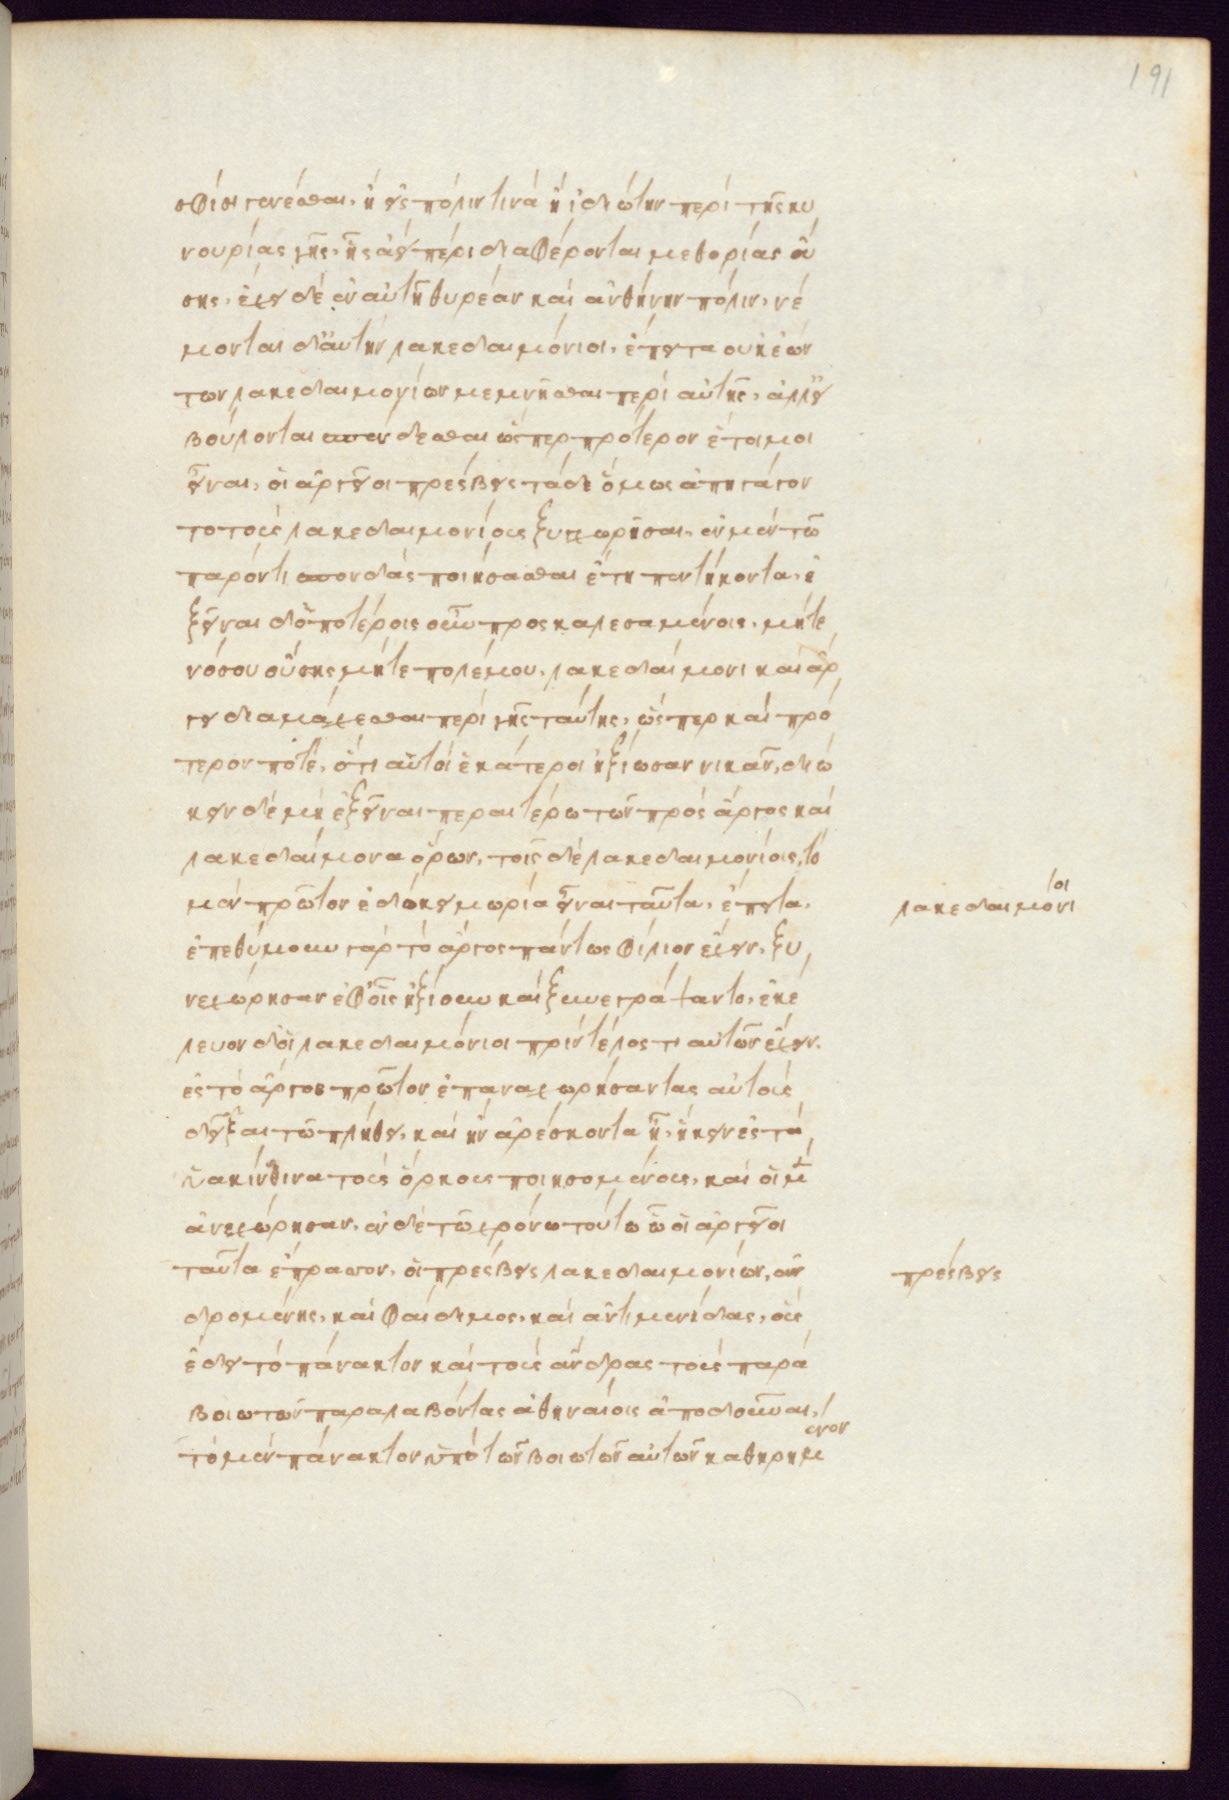 191
σφίσι γενέσθαι, ἢ ἐς πόλιν τινὰ ἢ ἰδιώτην περὶ τῆς κυ
νουρίας γῆς, ἧς ἀεὶ πέρι διαφέρονται μεθορίας οὔ
σης, ἔχει δὲ ἐν αὑτῇ θυρέαν καὶ ἀνθήνην πόλιν, νέ
μονται δ' αὐτὴν λακεδαιμόνιοι, ἔπειτα οὐκ ἐών
των λακεδαιμονίων μεμνῆσθαι περὶ αὐτῆς, ἀλλ' εἰ
βούλονται σπένδεσθαι ὥσπερ πρότερον ἑτοῖμοι
εἶναι, οἱ ἀργεῖοι πρέσβεις τάδε ὅμως ἐπηγάγον
το τοὺς λακεδαιμονίους ξυγχωρῆσαι, ἐν μὲν τῷ
παρόντι σπονδὰς ποιήσασθαι ἔτη πεντήκοντα, ἐ
ξεῖναι δ' ὁποτέροις οὖν προσκαλεσαμένοις, μήτε
νόσου οὔσης μήτε πολέμου, λακεδαίμονι καὶ ἄρ
γει διαμάχεσθαι περὶ γῆς ταύτης, ὥσπερ καὶ πρό
τερον ποτὲ, ὅτι αὐτοὶ ἑκάτεροι ἠξίωσαν νικᾶν, διώ
κειν δὲ μὴ ἐξεῖναι περαιτέρω τῶν πρὸς ἄργος καὶ
λακεδαίμονα ὅρων, τοῖς δὲ λακεδαιμονίοις, τὸ
μὲν πρῶτον ἐδόκει μωρία εἶναι ταῦτα, ἔπειτα,
ἐπεθύμουν γὰρ τὸ ἄργος πάντως φίλιον ἔχειν, ξυ
νεχώρησαν ἐφ' οἷς ἠξίουν καὶ ξυνεγράψαντο, ἐκέ
λευον δ' οἱ λακεδαιμόνιοι πρὶν τέλος τι αὐτῶν ἔχειν,
ἐς τὸ ἄργος πρῶτον ἐπαναχωρήσαντας αὐτοὺς
δεῖξαι τῷ πλήθει, καὶ ἢν ἀρέσκοντα ᾖ, ἥκειν ἐς τὰ
ὑακίνθινα τοὺς ὅρκους ποιησομένους, καὶ οἱ μὲν
ἀνεχώρησαν, ἐν δὲ τῷ χρόνω τούτω ᾧ οἱ ἀργεῖοι
ταῦτα ἔπρασσον, οἱ πρέσβεις λακεδαιμονίων, ἀν
δρομένης, καὶ φαίδιμος, καὶ ἀντιμενίδας, οὓς
ἔδει τὸ πάνακτον καὶ τοὺς ἄνδρας τοὺς παρὰ
βοιωτῶν παραλαβόντας ἀθηναίοις ἀποδοῦναι,
τὸ μὲν πάνακτον ὑπὸ τῶν βοιωτῶν αὐτῶν καθηρημένον
λακεδαιμόνιοι
πρέσβεις